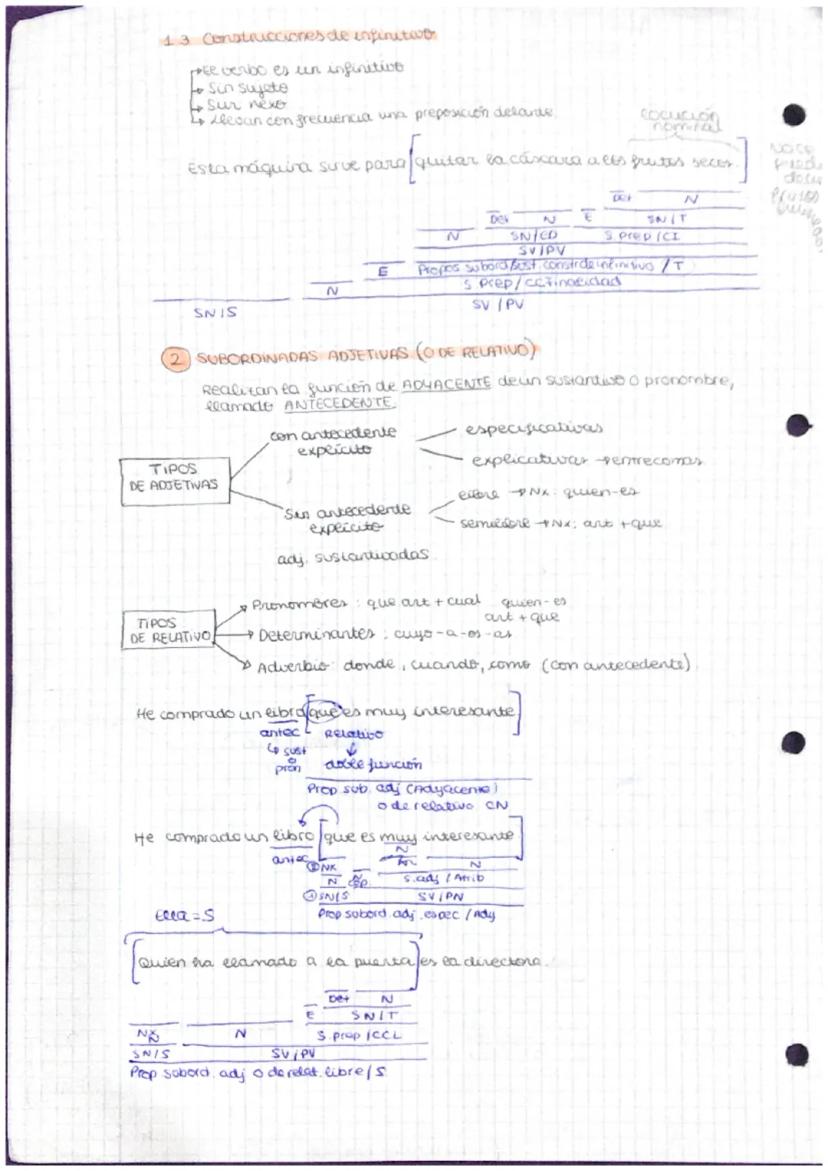 1.3 Construcciones de infinitivo
↳ El verbo es un infinitivo
↳ Sin sujeto
↳ Sin nexo
↳ Llevan con frecuencia una preposición delante.
locución nominal
Esta máquina sirve para [quitar la cáscara a los frutos secos.]
Det N
Det N E SN/T
N SN/CD S. Prep/CI
SV/PV
E Propos subord/sust. constr de infinitivo / T
N S. Prep/CC Finalidad
SN/S SV/PV
2 SUBORDINADAS ADJETIVAS (O DE RELATIVO)
Realizan la función de ADYACENTE de un sustantivo o pronombre,
llamado ANTECEDENTE.
TIPOS DE ADJETIVAS
con antecedente explícito
especificativas
explicativas → entre comas
Sin antecedente explícito
libre → Nx: quien-es
semilibre → Nx: art + que
adj. sustantivadas
TIPOS DE RELATIVO
Pronombres: que art + cual quien-es
art + que
Determinantes: cuyo-a-os-as
Adverbio: donde, cuando, como (con antecedente)
He comprado un libro [que es muy interesante]
antec Relativo
↳ sust ↓
o pron doble función
Prop sub. adj (Adyacente)
o de relativo CN
He comprado un libro [que es muy interesante]
antec N
NX N
N S. adj / Atrib
SN/S SV/PN
Prop subord. adj. espec / Ady
Ella = S
[Quien ha llamado a la puerta] es la directora.
Det N
E SN/T
NX N S. prep/CCL
N
SN/S SV/PV
Prop subord. adj o de relat. libre/S